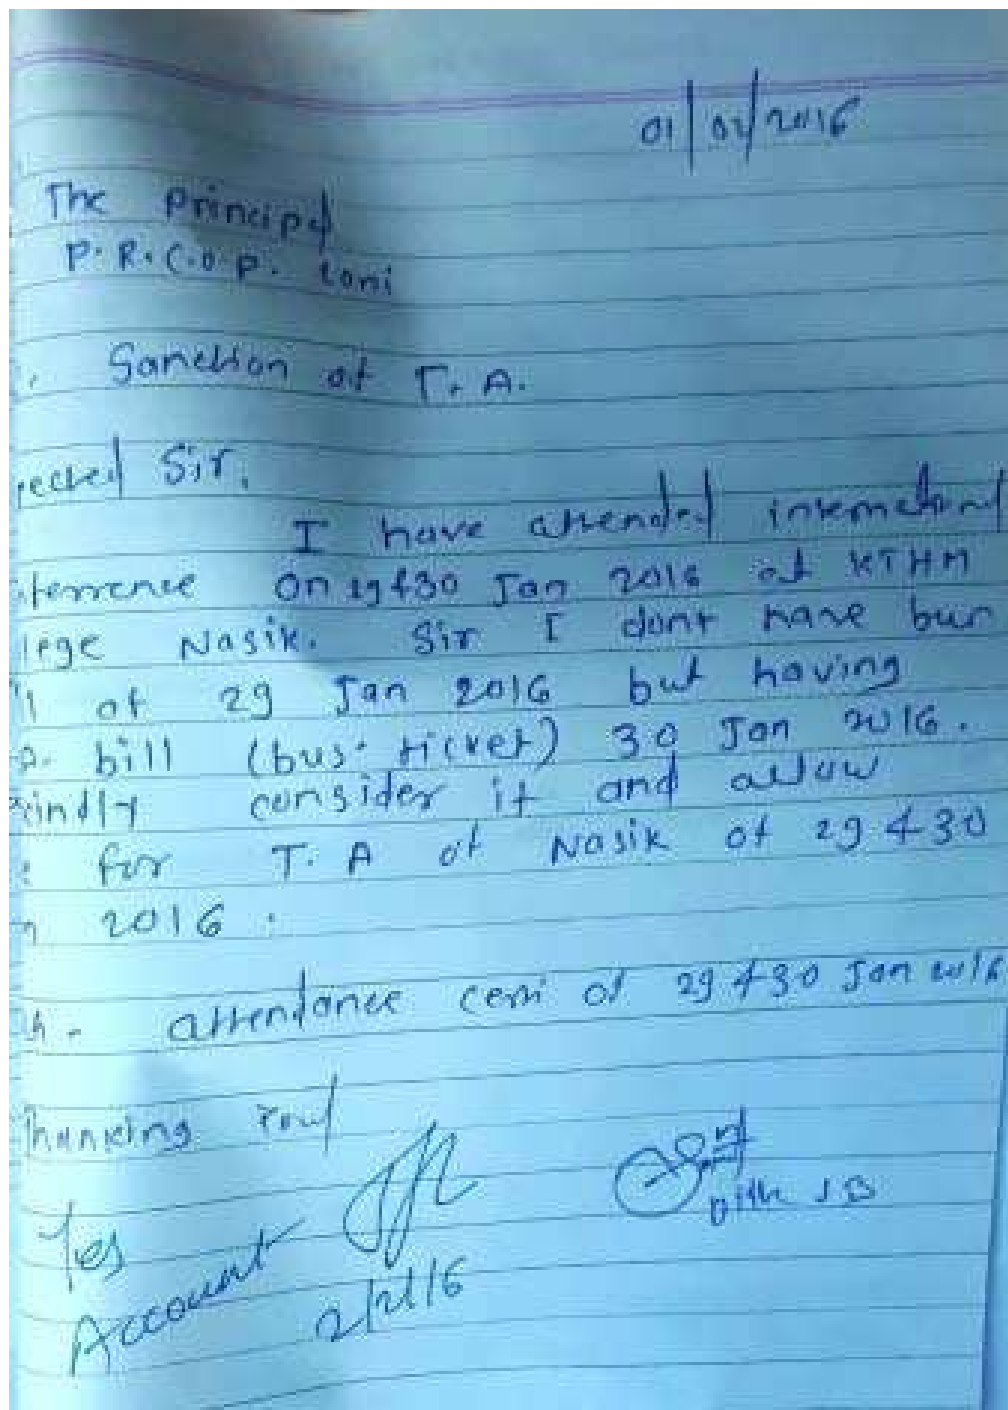 01/02/2016
The Principal
P.R.C.O.P. Loni
. Sanction of T.A.
pected Sir,
I have attended international
nferrence on 29 & 30 Jan 2016 at KTHM
llege Nasik. Sir I dont have bus
of 29 Jan 2016 but having
bill (bus ticket) 30 Jan 2016.
kindly consider it and allow
e for T.A of Nasik of 29 & 30
n 2016.
attendance certi of 29 & 30 Jan 2016
Thanking You
Yes
Account
2/2/16